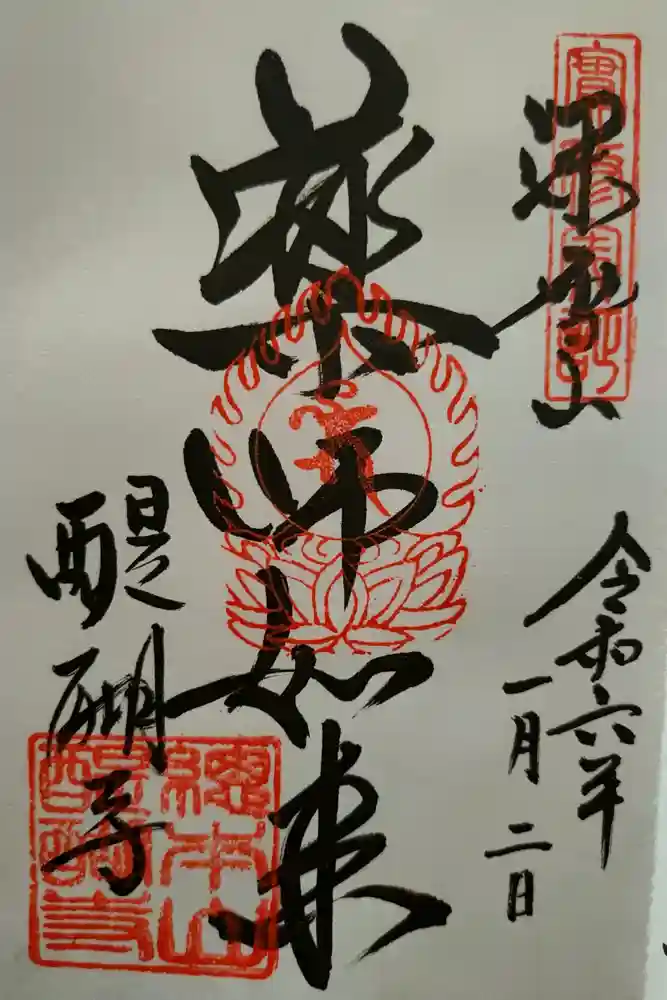 深雪山
令和六年
一月二日
薬師如来
醍醐寺
總本山
醍醐寺